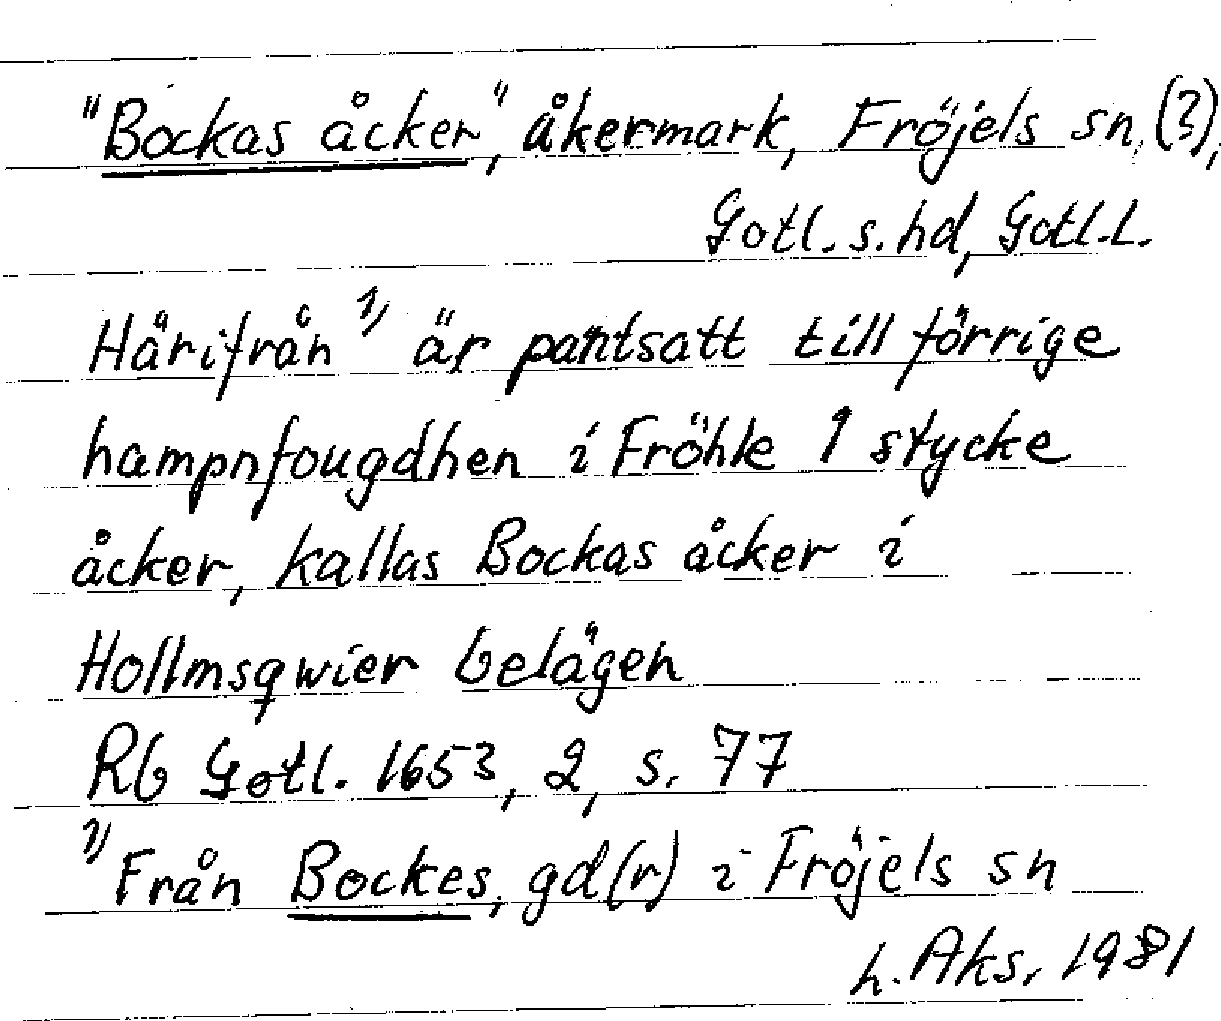 "Bockas åcker", åkermark, Fröjels sn, (?),
Gotl. s. hd, Gotl. l.
Härifrån 1) är pantsatt till förrige
hampnfougdhen i Fröhle 1 stycke
åcker, kallas Bockas åcker i
Hollmsqwier belägen
Rb Gotl. 1653, 2, s. 77
1) Från Bockes, gd(r) i Fröjels sn
h. Aks. 1981